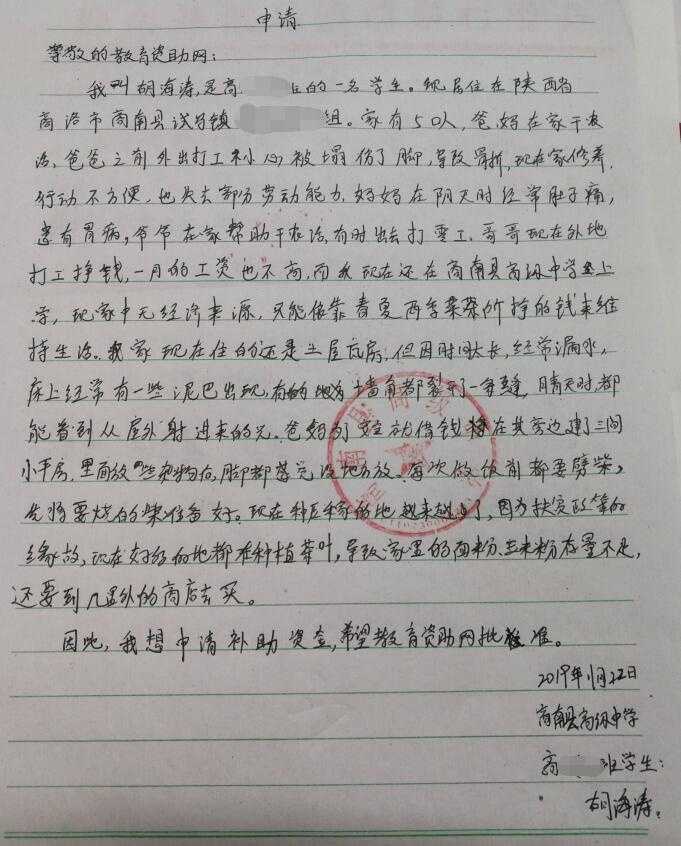 申请
尊敬的教育资助网：
我叫胡海涛，是高 上的一名学生。现居住在陕西省
商洛市商南县试马镇 组。家有5口人，爸妈在家干农
活，爸爸之前外出打工不小心被塌伤了脚，导致骨折，现在家修养，
行动不方便，也失去部分劳动能力，妈妈在阴天时经常肚子痛，
患有胃病，爷爷在家帮助干农活，有时出去打零工，哥哥现在外地
打工挣钱，一月的工资也不高，而我现在还在商南县高级中学上
学，现家中无经济来源，只能依靠春夏两季采茶 挣的钱来维
持生活。我家现在住的还是土屋瓦房，但因时间太长，经常漏水，
床上经常有一些泥巴出现，有的地方墙角都裂开了一条缝，晴天时，都
能看到从屋外射进来的光。爸妈 就借钱 在其旁边建了三间
小平房，里面放 些杂物后，脚都 没地方放。每次做饭前都要劈柴，
先将要烧的柴准备好。现在种庄稼的地越来越少了，因为扶贫政策的
缘故，现在好好的地都在种植茶叶，导致家里的面粉、玉米粉存量不足，
还要到几里外的商店去买。
因此，我想申请补助资金，希望教育资助网批准。
2019年11月22日
商南县高级中学
高 班学生：
胡海涛。